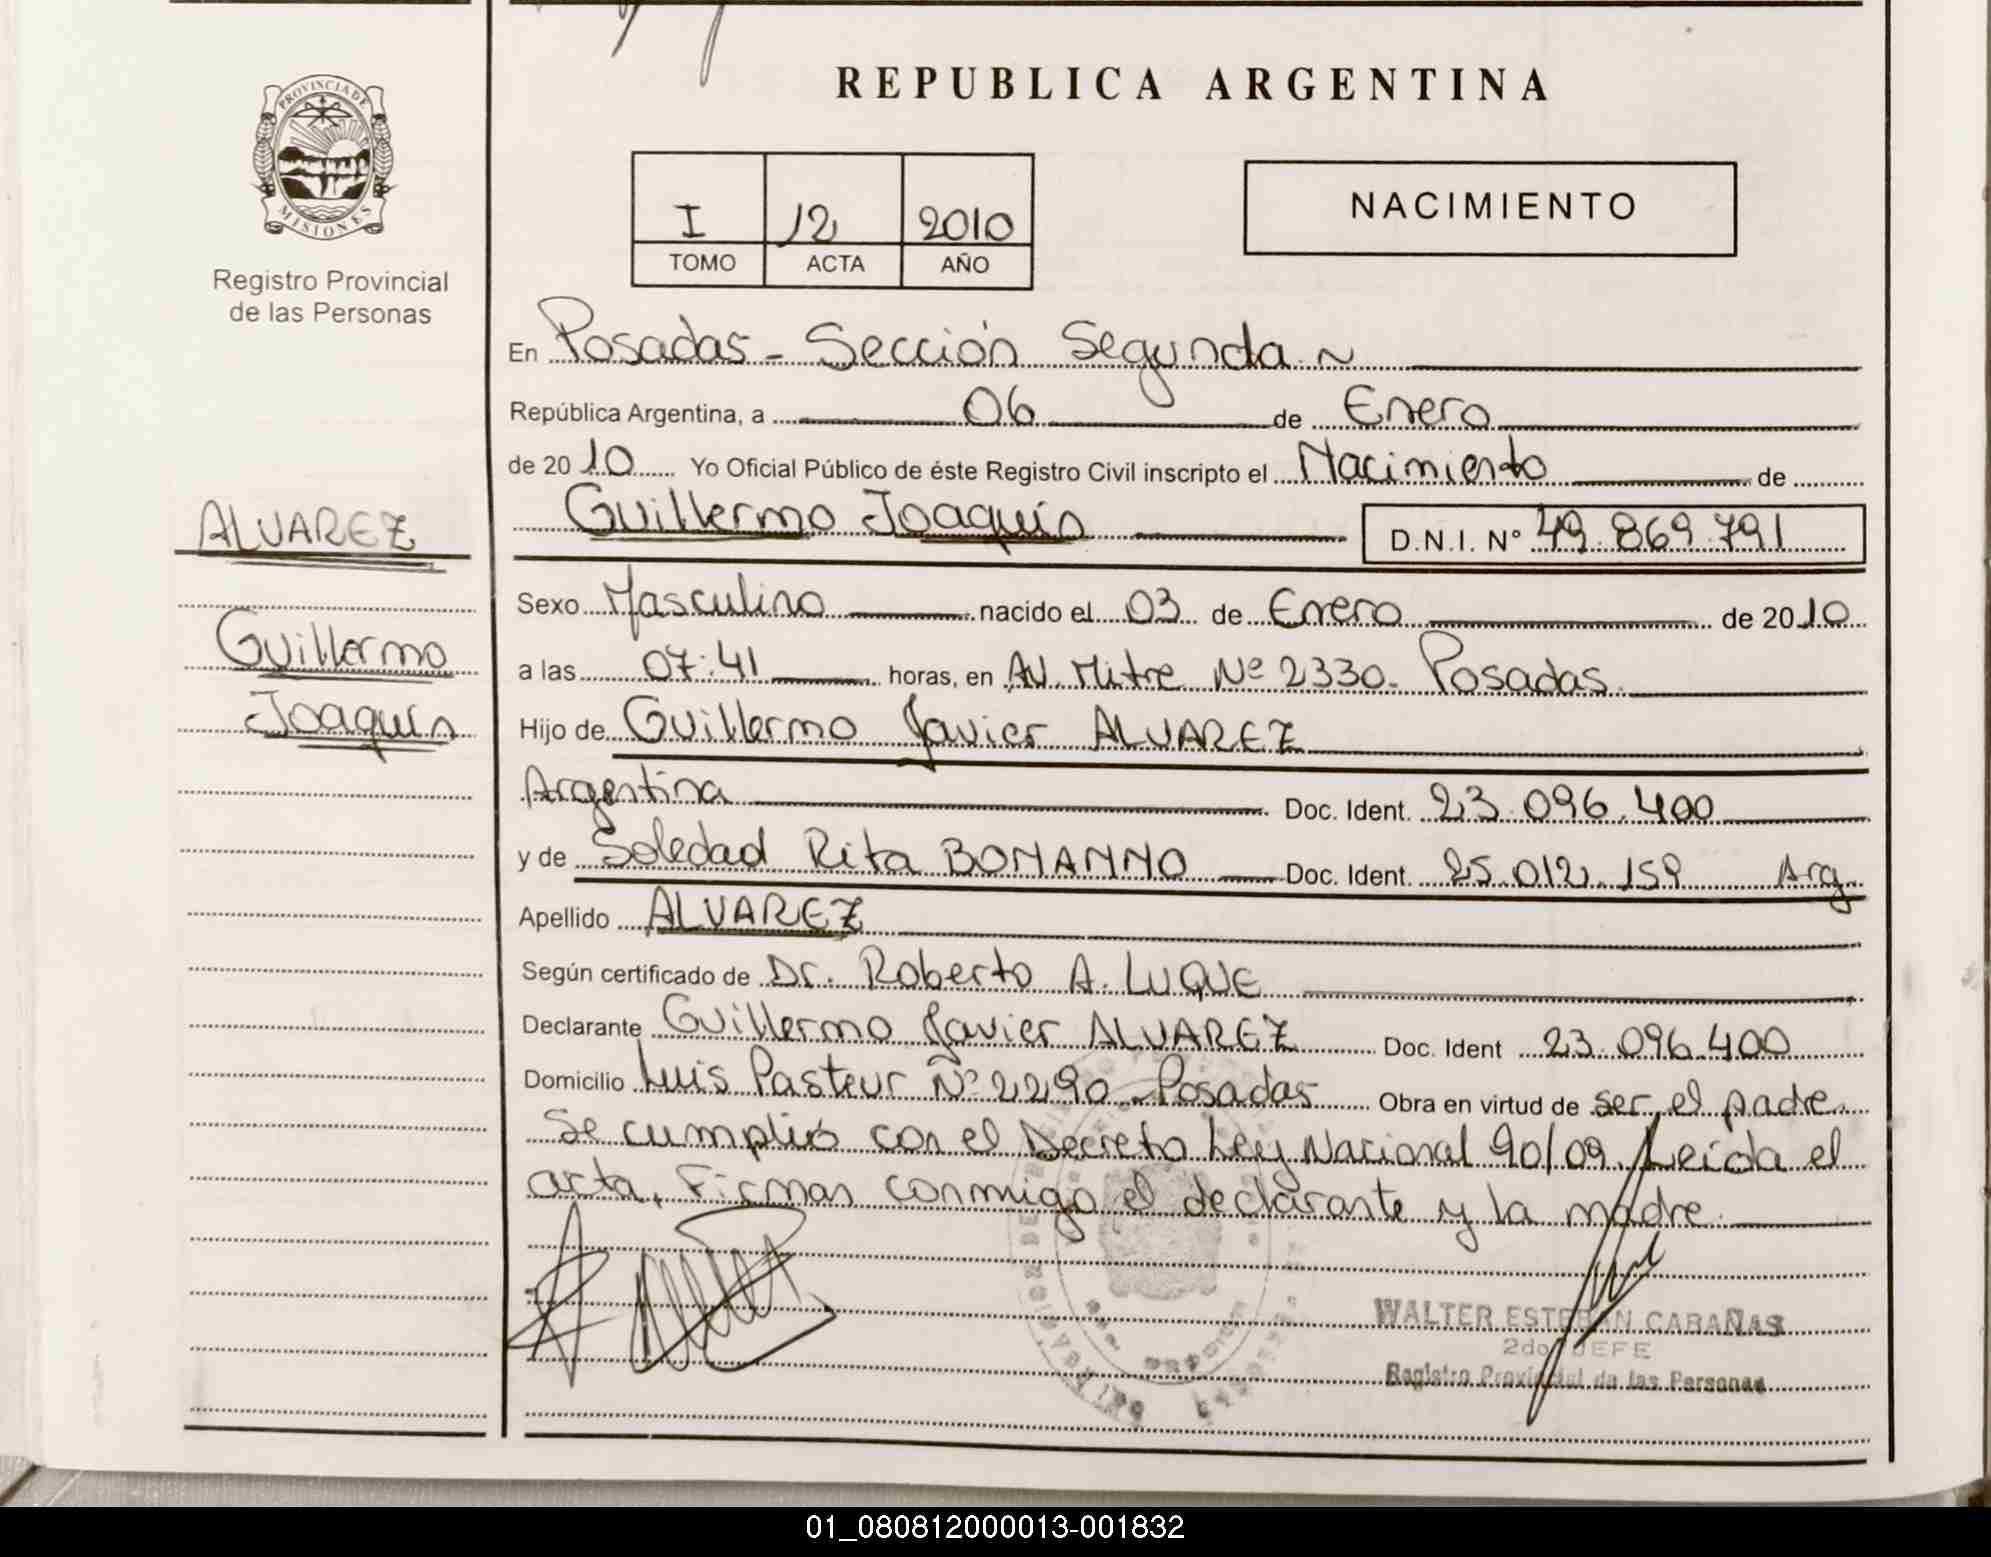 REPUBLICA ARGENTINA
PROVINCIA DE
MISIONES
Registro Provincial
de las Personas
I 12 2010
TOMO ACTA AÑO
NACIMIENTO
ALVAREZ
Guillermo
Joaquín
En Posadas - Sección Segunda ~
República Argentina, a 06 de Enero
de 2010 Yo Oficial Público de éste Registro Civil inscripto el Nacimiento de
Guillermo Joaquín D.N.I. Nº 49.869.791
Sexo Masculino nacido el 03 de Enero de 2010
a las 07:41 horas, en AV. Mitre Nº 2330. Posadas.
Hijo de Guillermo Javier ALVAREZ
Argentina Doc. Ident. 23.096.400
y de Soledad Rita BONANNO Doc. Ident. 25.012.159 Arg.
Apellido ALVAREZ
Según certificado de Dr. Roberto A. LUQUE
Declarante Guillermo Javier ALVAREZ Doc. Ident 23.096.400
Domicilio Luis Pasteur Nº 2290 - Posadas Obra en virtud de ser el padre.
Se cumplió con el Decreto Ley Nacional 90/09. Leída el
acta, Firman conmigo el declarante y la madre.
WALTER ESTEBAN CABAÑAS
2do JEFE
Registro Provincial de las Personas
01_080812000013-001832